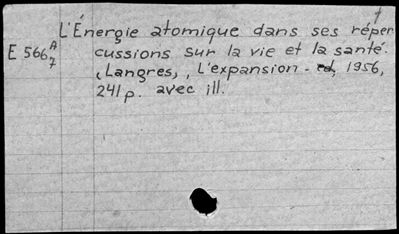 L'Énergie atomique dans ses réper
cussions sur la vie et la santé.
E 566 A 7
(Langres), L'expansion - ed, 1956,
241 p. avec ill.